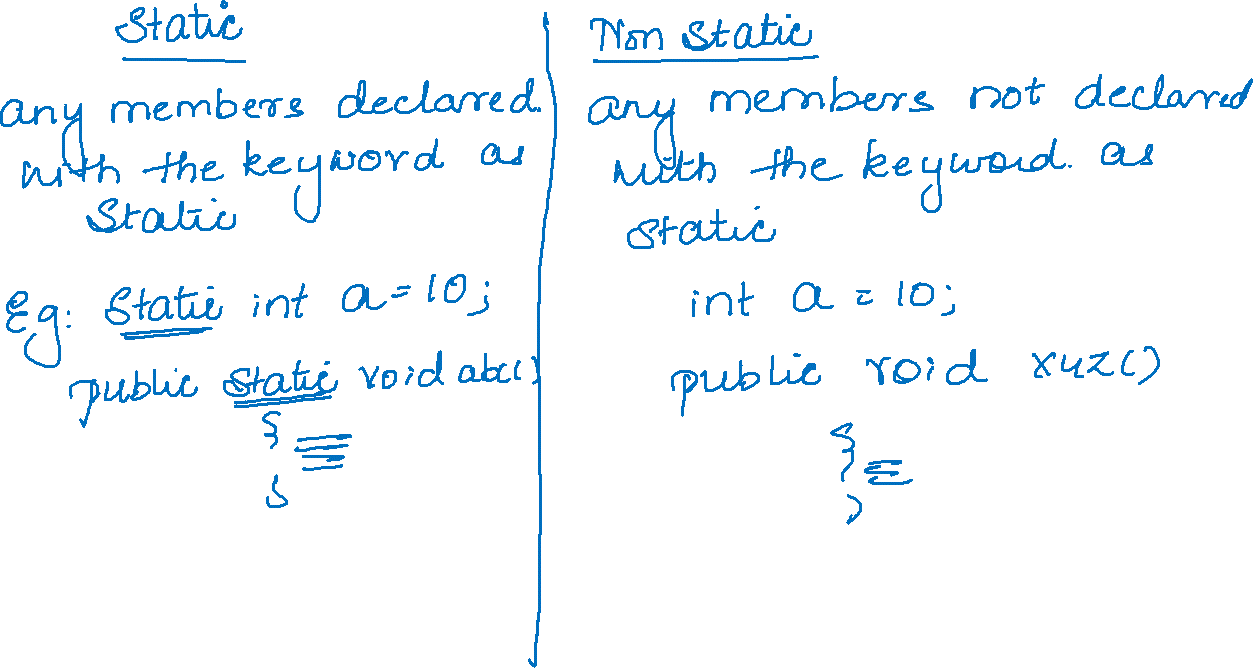 Static
any members declared
with the keyword as
Static
Eg: Static int a=10;
public Static void abc()
{
}
Non Static
any members not declared
with the keyword. as
static
int a = 10;
public void xyz()
{
}